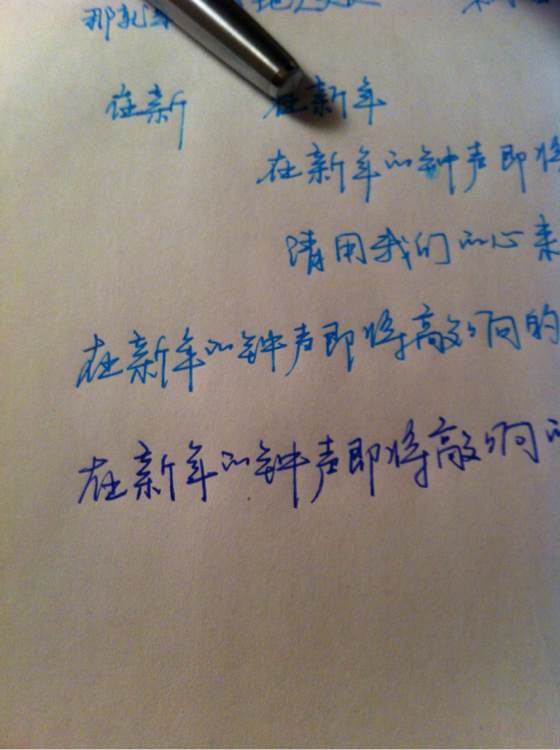 那就
在新 在新年
在新年的钟声即将
请用我们的心来
在新年的钟声即将敲响的
在新年的钟声即将敲响的